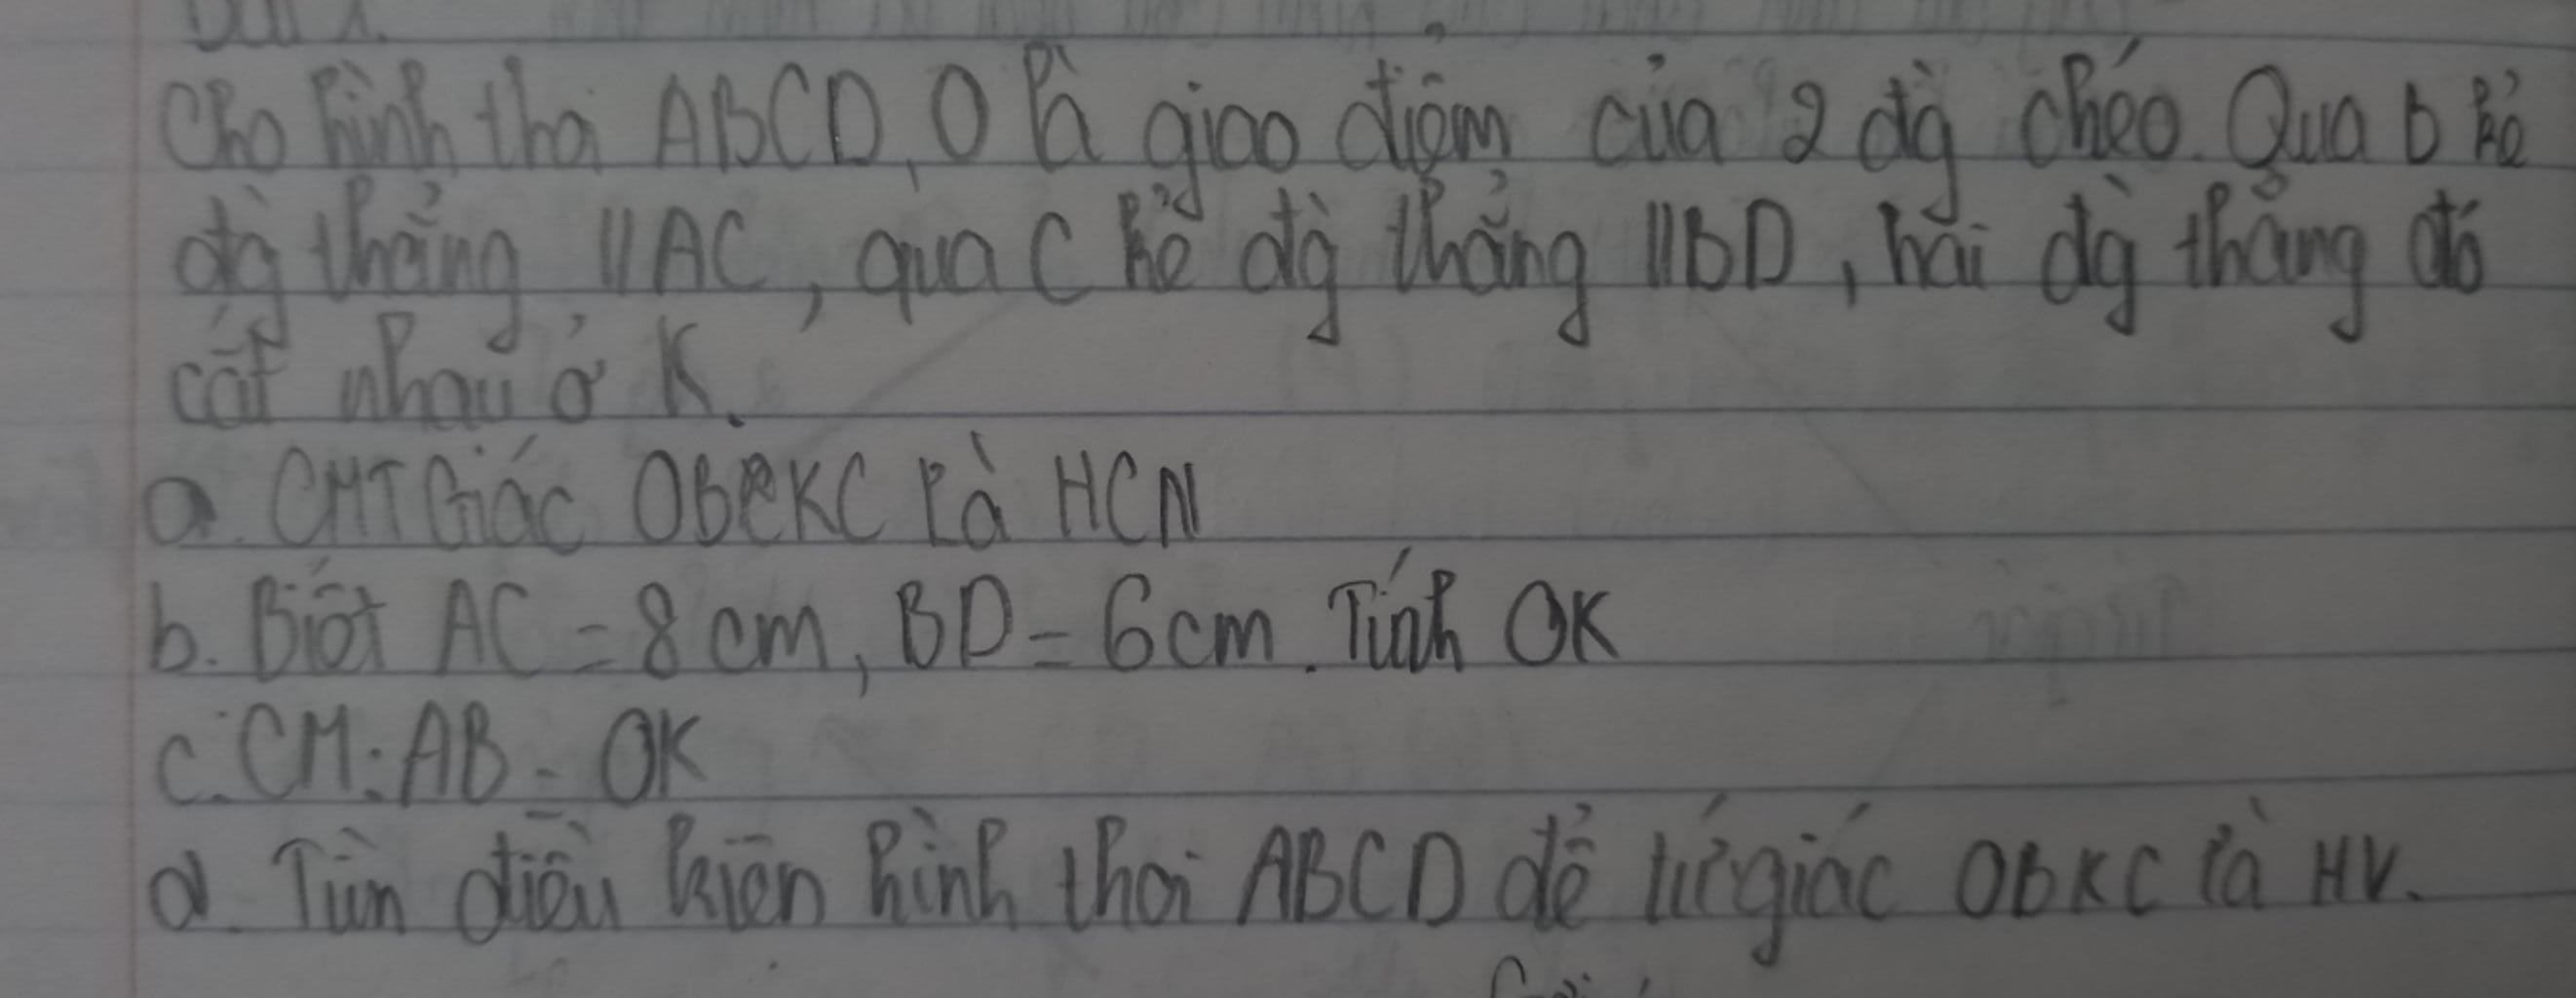 Cho hình thoi ABCD, O là giao điểm của 2 đg chéo. Qua b kẻ
đg thẳng // AC, qua C kẻ đg thẳng //BD, hai đg thẳng đó
cắt nhau ở K.
a. CMTGiác OBKC là HCN
b. Biết AC = 8 cm, BD = 6cm. Tính OK
c. CM: AB = OK
d. Tìm điều kiện hình thoi ABCD để tứ giác OBKC là HV.